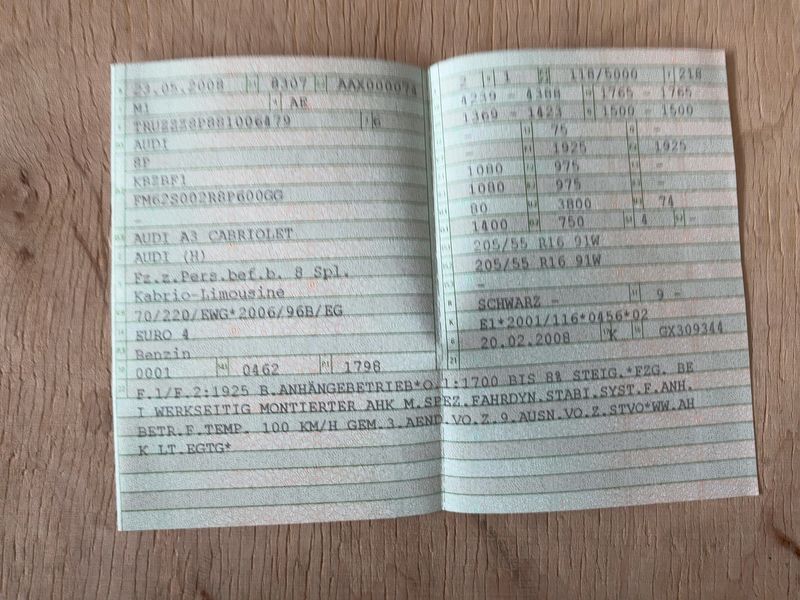 23.05.2008 8307 AAX000074
M1 AE
TRUZZZ8P881006479 6
AUDI
8P
KBZBF1
FM62S002R8P600GG
-
AUDI A3 CABRIOLET
AUDI (H)
Fz.z.Pers.bef.b. 8 Spl.
Kabrio-Limousine
70/220/EWG*2006/96B/EG
EURO 4
Benzin
0001 0462 1798
2 1 118/5000 218
4239 - 4388 1765 - 1765
1369 - 1423 1500 - 1500
- 75 -
- 1925 1925
1080 975 -
1080 975 -
80 3800 74
1400 750 4 -
205/55 R16 91W
205/55 R16 91W
-
SCHWARZ - 9 -
E1*2001/116*0456*02
20.02.2008 K GX309344
F.1/F.2:1925 B.ANHÄNGEBETRIEB*O.1:1700 BIS 8% STEIG.*FZG. BE
I WERKSEITIG MONTIERTER AHK M.SPEZ.FAHRDYN.STABI.SYST.F.ANH.
BETR.F.TEMP. 100 KM/H GEM.3.AEND.VO.Z.9.AUSN.VO.Z.STVO*WW.AH
K LT.EGTG*